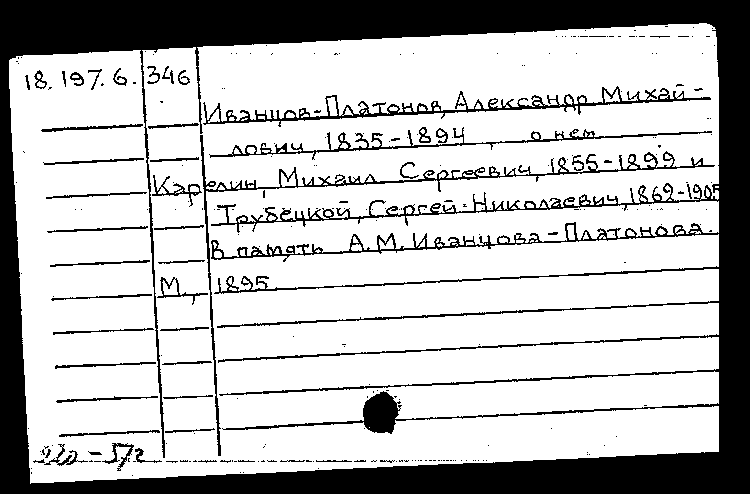 18.197.6.346
Иванцов-Платонов, Александр Михай-
лович, 1835-1894, о нем
Карелин, Михаил Сергеевич, 1855-1899 и
Трубецкой, Сергей Николаевич, 1862-1905
В память А.М. Иванцова-Платонова.
М., 1895